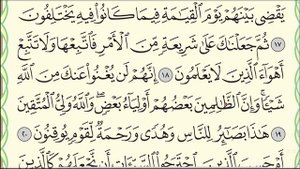 يَقْضِى بَيْنَهُمْ يَوْمَ ٱلْقِيَٰمَةِ فِيمَا كَانُوا۟ فِيهِ يَخْتَلِفُونَ
١٧ ثُمَّ جَعَلْنَٰكَ عَلَىٰ شَرِيعَةٍ مِّنَ ٱلْأَمْرِ فَٱتَّبِعْهَا وَلَا تَتَّبِعْ
أَهْوَآءَ ٱلَّذِينَ لَا يَعْلَمُونَ ١٨ إِنَّهُمْ لَن يُغْنُوا۟ عَنكَ مِنَ ٱللَّهِ
شَيْـًٔا وَإِنَّ ٱلظَّٰلِمِينَ بَعْضُهُمْ أَوْلِيَآءُ بَعْضٍ وَٱللَّهُ وَلِىُّ ٱلْمُتَّقِينَ
١٩ هَٰذَا بَصَٰٓئِرُ لِلنَّاسِ وَهُدًى وَرَحْمَةٌ لِّقَوْمٍ يُوقِنُونَ ٢٠
أَمْ حَسِبَ ٱلَّذِينَ ٱجْتَرَحُوا۟ ٱلسَّيِّـَٔاتِ أَن نَّجْعَلَهُمْ كَٱلَّذِينَ